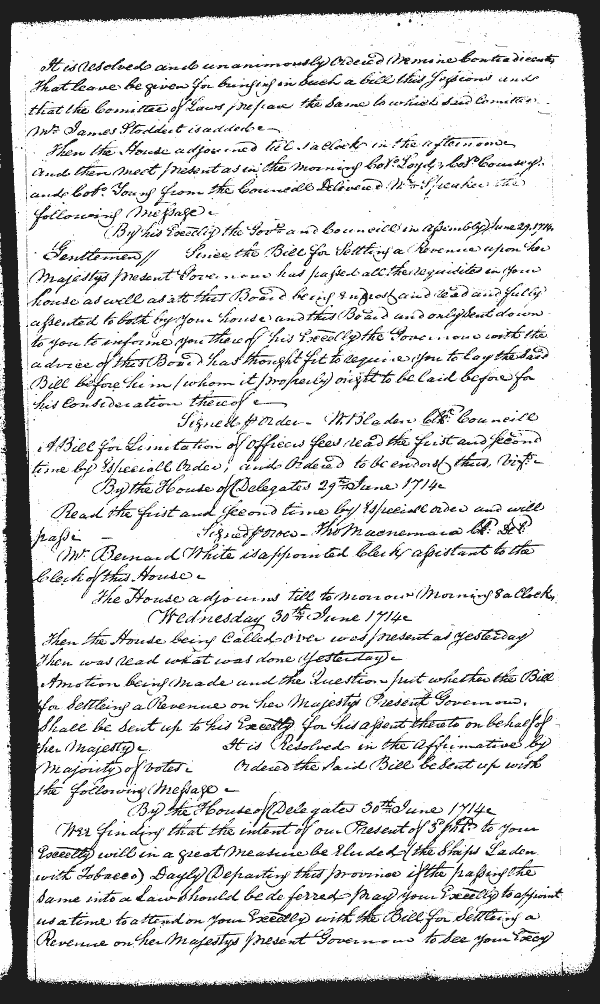 It is resolved and unanimously Ordered Nemine Contradicente
That leave be given for bringing in Such a bill this Sessions and
that the Comittee of Laws prepare the Same to which said Comittee
Mr. James Stoddert is added
Then the House adjourned till 2 a Clock in the afternoon
and then meet present as in the morning Colo. Loyd, Colo. Coursey
and Colo. Young from the Councill Delivered Mr. Speaker the
following Message
By his Excelly the Govr. and Councill in assembly June 29. 1714
Gentlemen// Since the Bill for Settling a Revenue upon her
Majestys present Governour has passed all the requisites in your
house as well as att this Board being Endorst and read and fully
assented to both by your house and this Board and only Sent down
to you to informe you thereof his Excelly the Governour with the
advice of this Board has thought fit to require you to lay the Said
Bill before him (whom it properly ought to be laid before for
his Consideration thereof
Signed p Order W Bladen Clk. Councill
A Bill for Limitation of Officers fees read the first and Second
time by Especiall Order, and Ordered to be endorst thus, Vizt.
By the House of Delegates 29th June 1714
Read the first and Second time by Especial order and will
passe Signed p Order Thos Macnemara Cl.
Mr. Bernard White is appointed Clerk assistant to the
Clerk of this House
The House adjourns till to morrow Morning 8 a Clock
Wednesday 30th June 1714
Then the House being Called over was present as yesterday
Then was read what was done yesterday
A motion being made and the Question put whether the Bill
for Settling a Revenue on her Majestys Present Governour
Shall be Sent up to his Excelly for his assent thereto on behalf of
her Majesty It is Resolved in the Affirmative by
Majority of votes Ordered the Said Bill be Sent up with
the following Message
By the House of Delegates 30th June 1714
Wee finding that the intent of our Present of 3 pHhd. to your
Excelly will in a great Measure be Eluded (the Ships Laden
with Tobacco) Dayly Departing this province if the passing the
Same into a Law should be deferred pray your Excelly to appoint
us a time to attend on your Excelly with the Bill for Settling a
Revenue on her Majestys present Governour to See your Excy